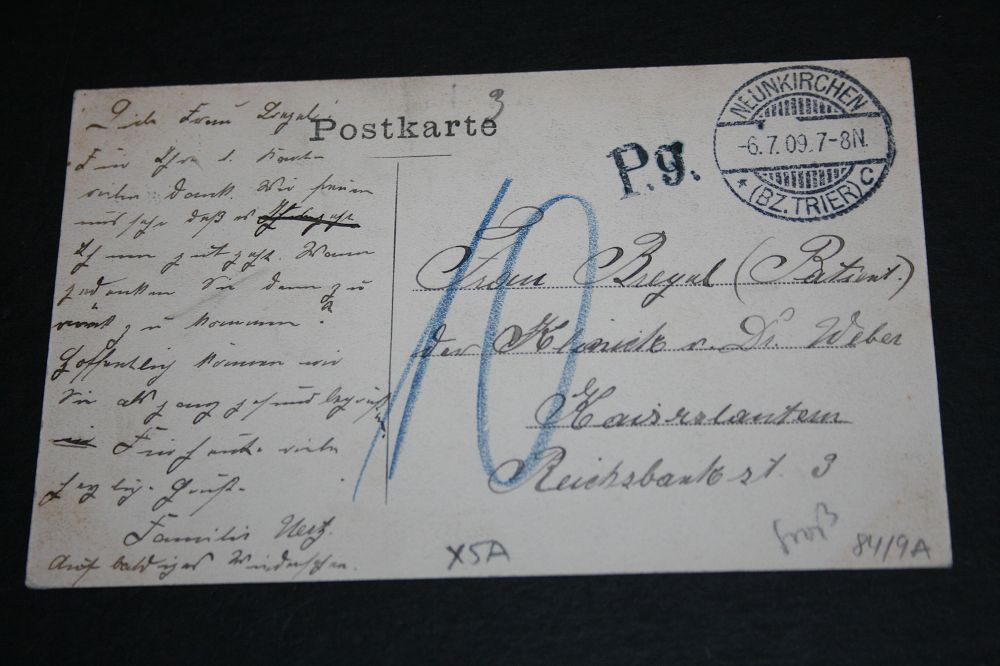 Postkarte
3
P.g.
NEUNKIRCHEN
-6.7.09.7-8N.
* (BZ. TRIER) C
10
Frau Bregel (Patient.)
der Klinick v. Dr. Weber
Kaiserslautern
Reichsbankst. 3
Liebe Frau Bregel!
Für Ihre l. Karte
vielen Dank. Wir freuen
uns sehr daß es
Ihnen gut geht. Wann
gedenken Sie denn zu
zurück zu kommen?
Hoffentlich können wir
Sie als ganz gesund begrüßen
Für heute viele
herzlige Grüße
Familie Uertz.
Auf baldiges Wiedersehen.
X5A
groß
84/9A